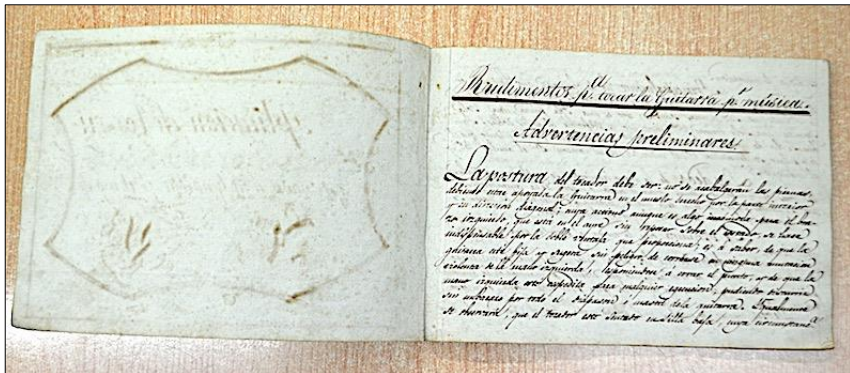 Rudimentos p.ª tocar la Guitarra p.r música.
Advertencias preliminares.
La postura del tocador debe ser: no se acabalgarán las piernas,
debiendo estar apoyada la Guitarra en el muslo derecho por la parte inferior
y en direccion diagonal; cuya accion aunque es algo incómoda para el bra-
zo izquierdo, que está en el aire sin reposar sobre el costado, se hace
indispensable por la doble ventaja que proporciona; es á saber, de que la
guitarra esté fija y segura, sin peligro de correrse en ninguna
violenta de la mano izquierda, esponiendose á errar el punto, y de que la
mano izquierda esté espedita para cualquier egecucion, pudiendo discurrir
sin embarazo por todo el diapason ó mastil de la guitarra. Igualmente
se observará, que el tocador esté sentado en silla baja, cuya